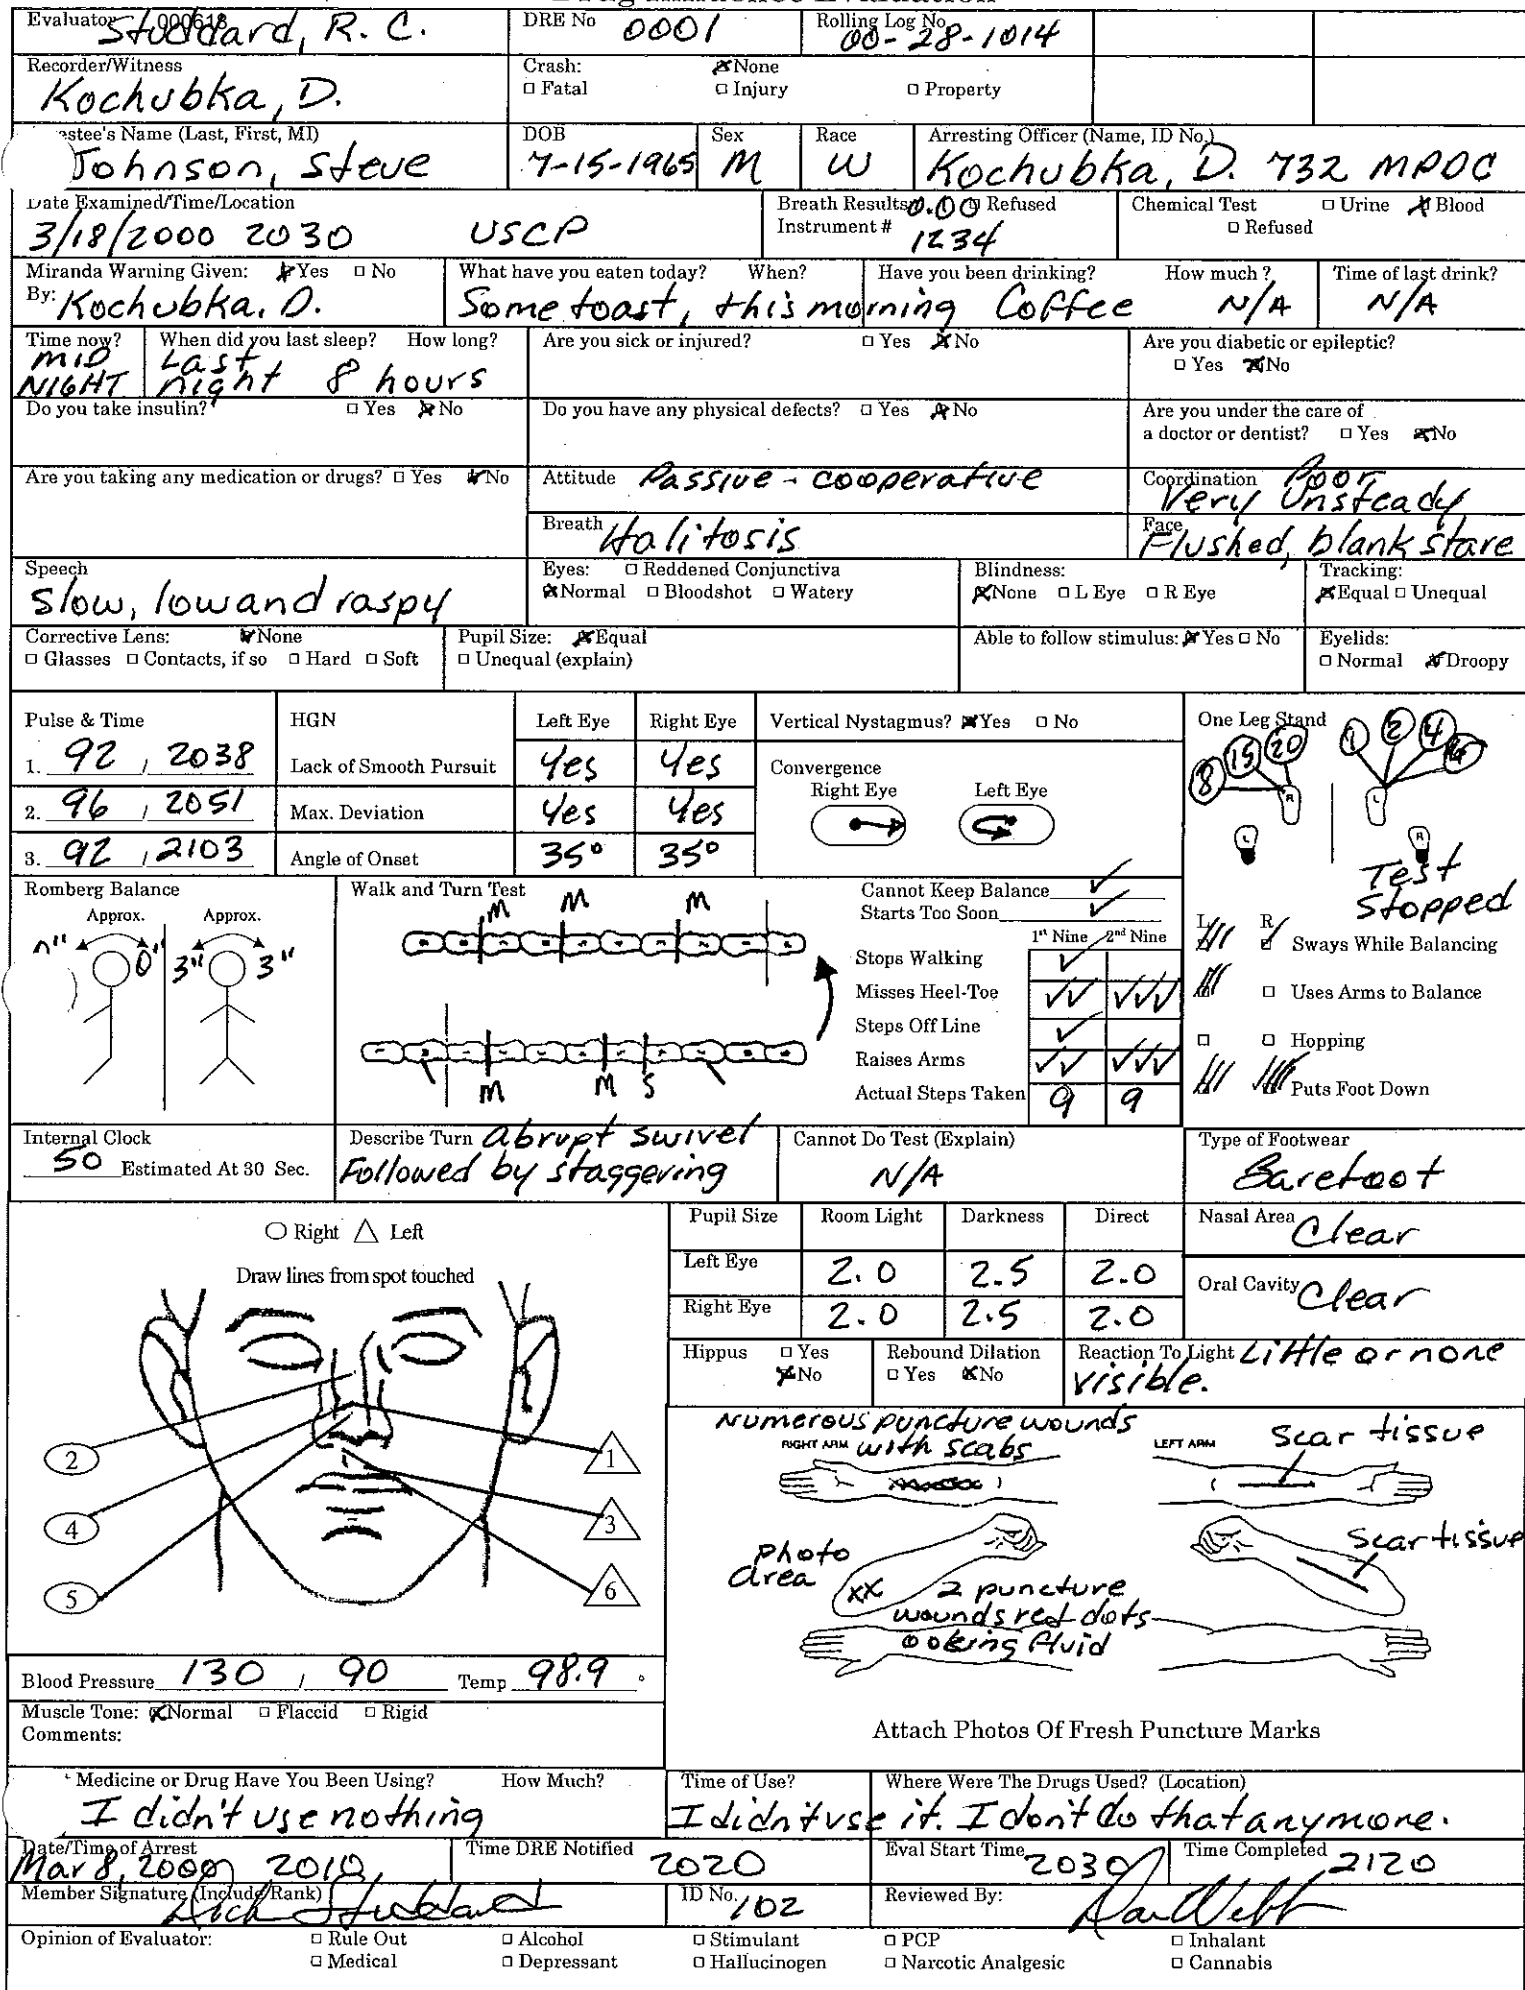 Evaluator 000618 Studdard, R. C.
DRE No 0001
Rolling Log No 00-28-1014
Recorder/Witness
Kochubka, D.
Crash: None
Fatal Injury Property
estee's Name (Last, First, MI)
Johnson, Steve
DOB
7-15-1965
Sex
M
Race
W
Arresting Officer (Name, ID No.)
Kochubka, D. 732 MPDC
Date Examined/Time/Location
3/18/2000 2030 USCP
Breath Results 0.00 Refused
Instrument # 1234
Chemical Test Urine Blood
Refused
Miranda Warning Given: Yes No
By: Kochubka, D.
What have you eaten today? When?
Some toast, this morning
Have you been drinking? How much?
Coffee N/A
Time of last drink?
N/A
Time now?
MID
NIGHT
When did you last sleep? How long?
Last
night 8 hours
Are you sick or injured? Yes No
Are you diabetic or epileptic?
Yes No
Do you take insulin? Yes No
Do you have any physical defects? Yes No
Are you under the care of
a doctor or dentist? Yes No
Are you taking any medication or drugs? Yes No
Attitude Passive - cooperative
Coordination Poor
Very Unsteady
Breath Halitosis
Face
Flushed, blank stare
Speech
Slow, low and raspy
Eyes: Reddened Conjunctiva
Normal Bloodshot Watery
Blindness:
None L Eye R Eye
Tracking:
Equal Unequal
Corrective Lens: None
Glasses Contacts, if so Hard Soft
Pupil Size: Equal
Unequal (explain)
Able to follow stimulus: Yes No
Eyelids:
Normal Droopy
Pulse & Time
1. 92 , 2038
2. 96 , 2051
3. 92 , 2103
HGN Left Eye Right Eye
Lack of Smooth Pursuit Yes Yes
Max. Deviation Yes Yes
Angle of Onset 35° 35°
Vertical Nystagmus? Yes No
Convergence
Right Eye Left Eye
One Leg Stand
8 15 20 1 2 4
R L
L R
Test
Stopped
L R
Sways While Balancing
Uses Arms to Balance
Hopping
Puts Foot Down
Romberg Balance
Approx. Approx.
0" 3" 3"
Walk and Turn Test
M M M
M M S
Cannot Keep Balance
Starts Too Soon
1st Nine 2nd Nine
Stops Walking
Misses Heel-Toe
Steps Off Line
Raises Arms
Actual Steps Taken 9 9
Internal Clock
50 Estimated At 30 Sec.
Describe Turn Abrupt swivel
Followed by staggering
Cannot Do Test (Explain)
N/A
Type of Footwear
Barefoot
Right Left
Draw lines from spot touched
2 1
4 3
5 6
Pupil Size Room Light Darkness Direct
Left Eye 2.0 2.5 2.0
Right Eye 2.0 2.5 2.0
Nasal Area Clear
Oral Cavity Clear
Hippus Yes
No
Rebound Dilation
Yes No
Reaction To Light Little or none
visible.
Numerous puncture wounds
RIGHT ARM with scabs
LEFT ARM Scar tissue
Scar tissue
Photo
Area
XX 2 puncture
wounds red dots
ooking fluid
Attach Photos Of Fresh Puncture Marks
Blood Pressure 130 / 90 Temp 98.9 °
Muscle Tone: Normal Flaccid Rigid
Comments:
Medicine or Drug Have You Been Using? How Much?
I didn't use nothing
Time of Use? Where Were The Drugs Used? (Location)
I didn't use it. I don't do that anymore.
Date/Time of Arrest
Mar 8, 2000 2010
Time DRE Notified
2020
Eval Start Time
2030
Time Completed
2120
Member Signature (Include Rank)
Dick Studdard
ID No. 102
Reviewed By:
Dan Webb
Opinion of Evaluator: Rule Out Alcohol Stimulant PCP Inhalant
Medical Depressant Hallucinogen Narcotic Analgesic Cannabis